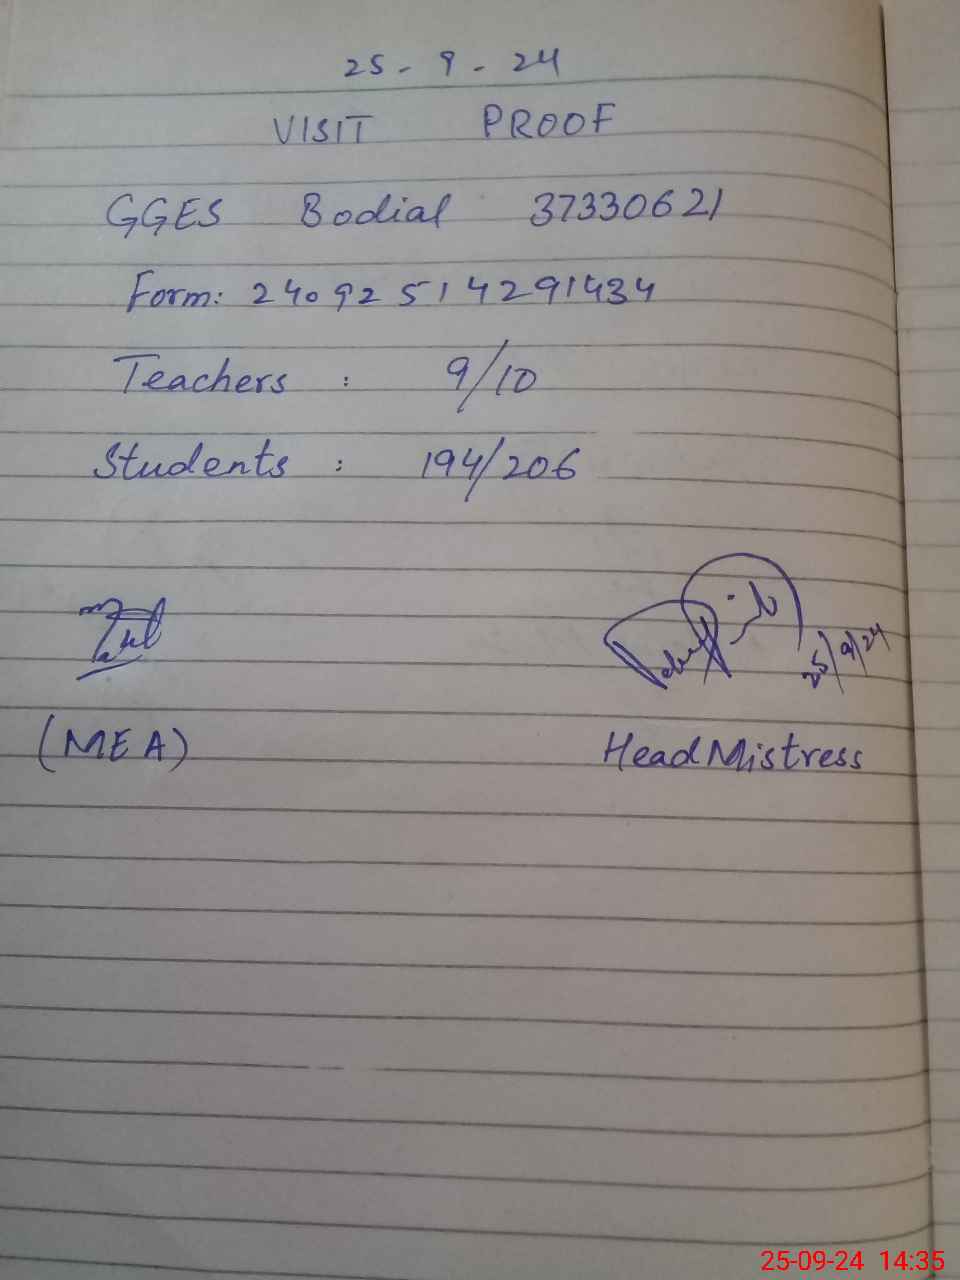 25 - 9 - 24
VISIT PROOF
GGES Bodial 37330621
Form: 24092514291434
Teachers : 9/10
Students : 194/206
25/9/24
(MEA)
HeadMistress
25-09-24 14:35